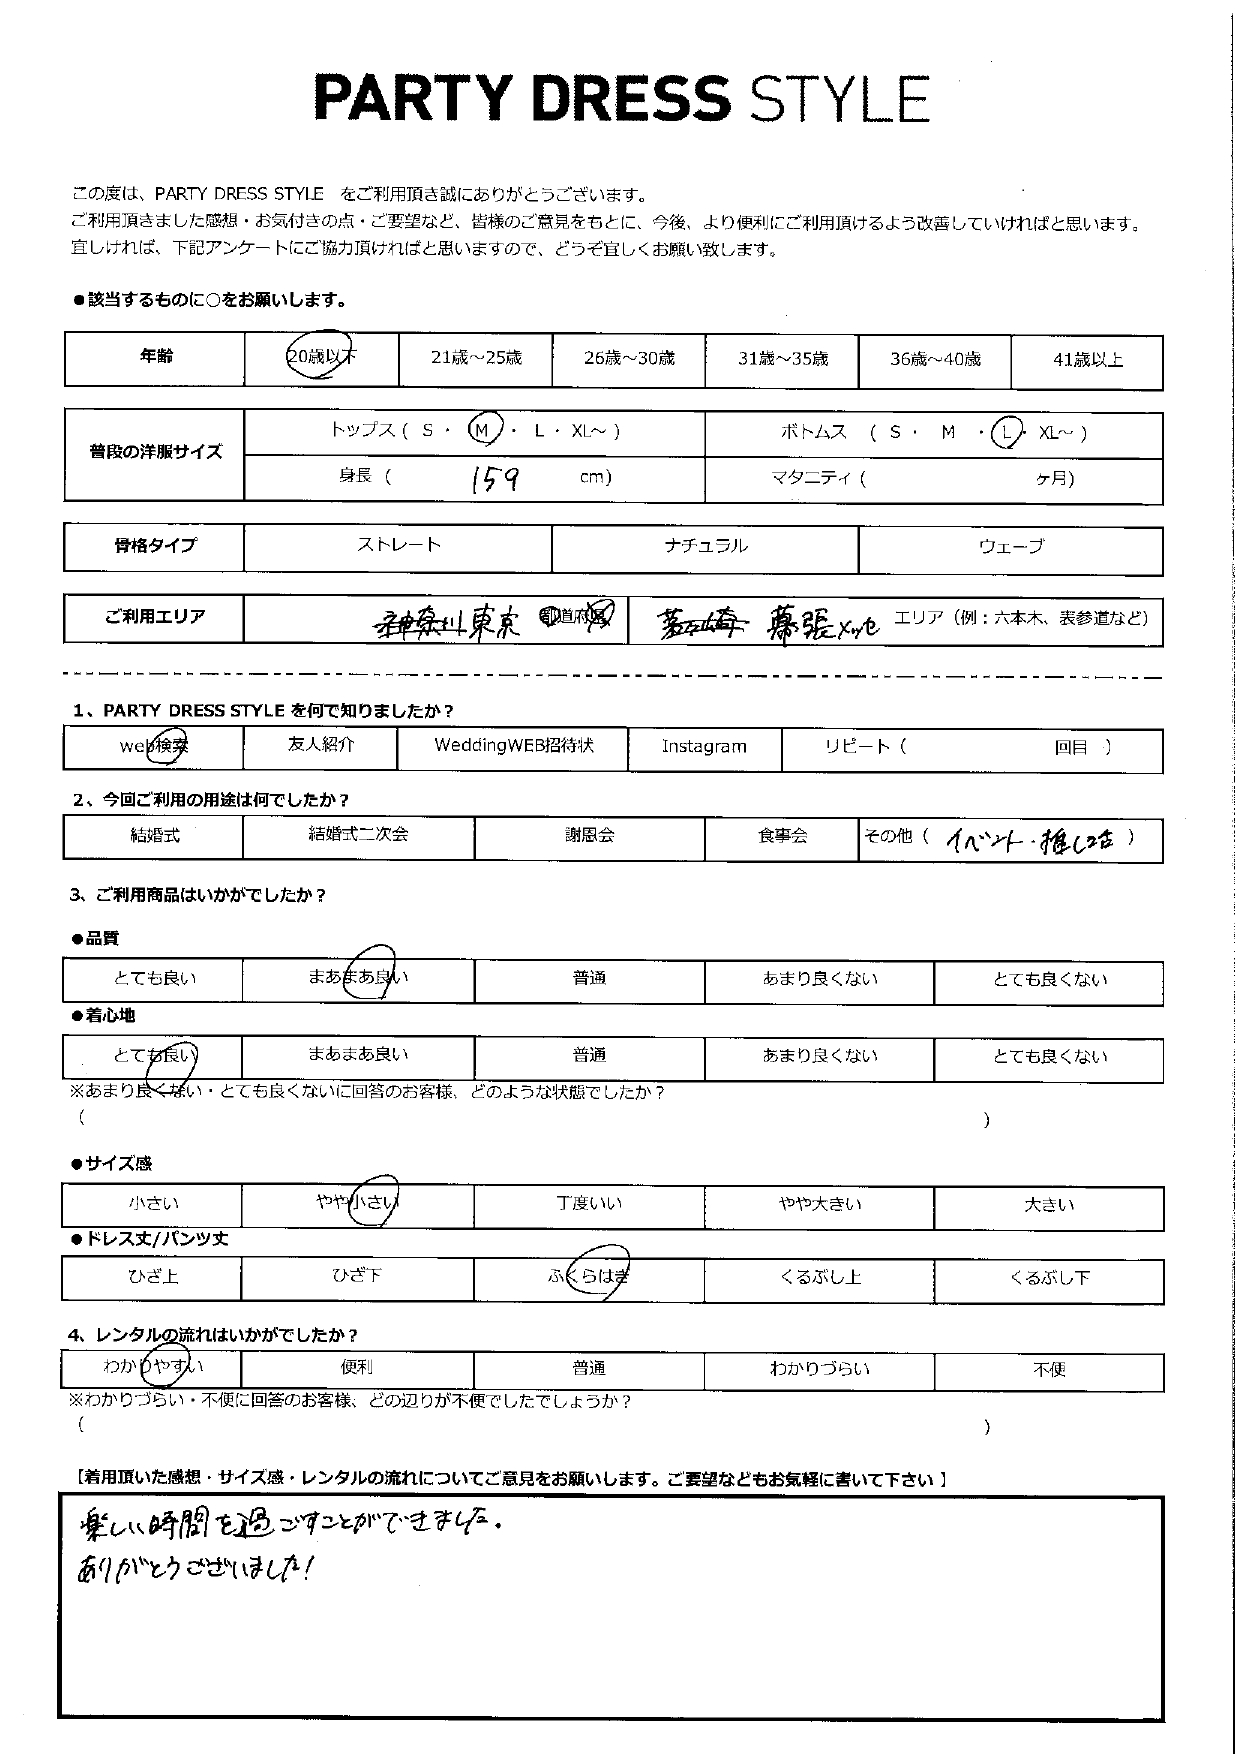 PARTY DRESS STYLE
この度は、PARTY DRESS STYLE をご利用頂き誠にありがとうございます。
ご利用頂きました感想・お気付きの点・ご要望など、皆様のご意見をもとに、今後、より便利にご利用頂けるよう改善していければと思います。
宜しければ、下記アンケートにご協力頂ければと思いますので、どうぞ宜しくお願い致します。
●該当するものに○をお願いします。
年齢 20歳以下 21歳～25歳 26歳～30歳 31歳～35歳 36歳～40歳 41歳以上
普段の洋服サイズ
トップス ( S ・ M ・ L ・ XL～ ) ボトムス ( S ・ M ・ L ・ XL～ )
身長 ( 159 cm) マタニティ ( ケ月)
骨格タイプ ストレート ナチュラル ウェーブ
ご利用エリア 神奈川 東京 都道府県 茅ヶ崎 幕張メッセ エリア（例：六本木、表参道など）
1、PARTY DRESS STYLE を何で知りましたか？
web検索 友人紹介 WeddingWEB招待状 Instagram リピート ( 回目 )
2、今回ご利用の用途は何でしたか？
結婚式 結婚式二次会 謝恩会 食事会 その他 ( イベント・推し活 )
3、ご利用商品はいかがでしたか？
●品質
とても良い まあまあ良い 普通 あまり良くない とても良くない
●着心地
とても良い まあまあ良い 普通 あまり良くない とても良くない
※あまり良くない・とても良くないに回答のお客様、どのような状態でしたか？
( )
●サイズ感
小さい やや小さい 丁度いい やや大きい 大きい
●ドレス丈/パンツ丈
ひざ上 ひざ下 ふくらはぎ くるぶし上 くるぶし下
4、レンタルの流れはいかがでしたか？
わかりやすい 便利 普通 わかりづらい 不便
※わかりづらい・不便に回答のお客様、どの辺りが不便でしたでしょうか？
( )
【着用頂いた感想・サイズ感・レンタルの流れについてご意見をお願いします。ご要望などもお気軽に書いて下さい 】
楽しい時間を過ごすことができました。
ありがとうございました！